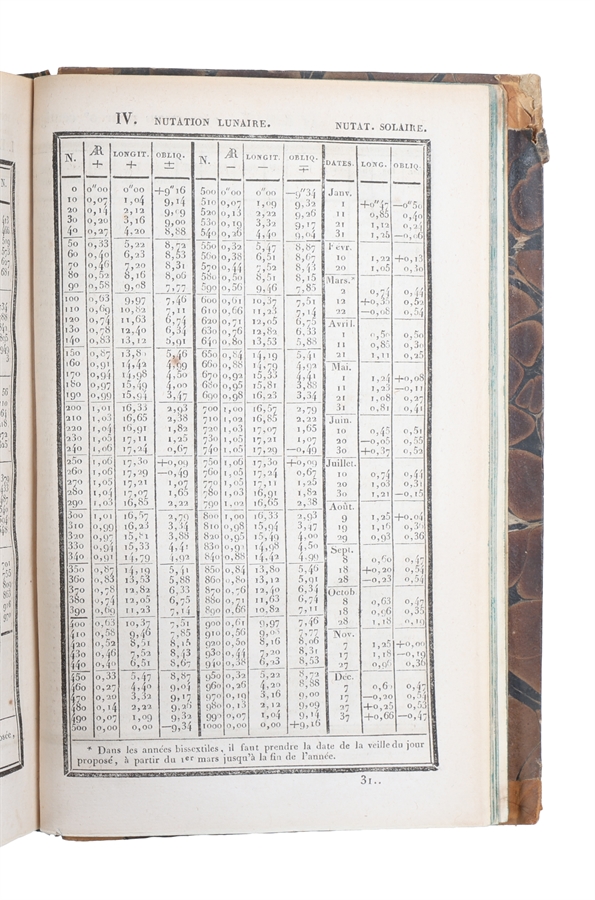 IV. NUTATION LUNAIRE. NUTAT. SOLAIRE.
N. ÆR + LONGIT. + OBLIQ. ± N. ÆR − LONGIT. − OBLIQ. ∓ DATES. LONG. OBLIQ.
0 0"00 0"00 +9"16 500 0"00 0"00 −9"34 Janv.
10 0,07 1,04 9,14 510 0,07 1,09 9,32 1 +0"47 −0"50
20 0,14 2,12 9,09 520 0,13 2,22 9,26 11 0,85 0,40
30 0,20 3,16 9,00 530 0,19 3,32 9,17 21 1,12 0,24
40 0,27 4,20 8,88 540 0,26 4,40 9,04 31 1,25 −0,06
50 0,33 5,22 8,72 550 0,32 5,47 8,87 Févr.
60 0,40 6,23 8,53 560 0,38 6,51 8,67 10 1,22 +0,13
70 0,46 7,20 8,31 570 0,44 7,52 8,43 20 1,05 0,30
80 0,52 8,16 8,06 580 0,50 8,51 8,15 Mars.*
90 0,58 9,08 7,77 590 0,56 9,46 7,85 2 0,74 0,44
100 0,63 9,97 7,46 600 0,61 10,37 7,51 12 +0,35 0,52
110 0,69 10,82 7,11 610 0,66 11,23 7,14 22 −0,08 0,54
120 0,74 11,63 6,74 620 0,71 12,05 6,75 Avril.
130 0,78 12,40 6,34 630 0,76 12,82 6,33 1 0,50 0,50
140 0,83 13,12 5,91 640 0,80 13,53 5,88 11 0,85 0,30
150 0,87 13,80 5,46 650 0,84 14,19 5,41 21 1,11 0,25
160 0,91 14,42 4,99 660 0,88 14,79 4,92 Mai.
170 0,94 14,98 4,50 670 0,92 15,33 4,41 1 1,24 +0,08
180 0,97 15,49 4,00 680 0,95 15,81 3,88 11 1,23 −0,11
190 0,99 15,94 3,47 690 0,98 16,23 3,34 21 1,08 0,27
200 1,01 16,33 2,93 700 1,00 16,57 2,79 31 0,81 0,41
210 1,03 16,65 2,38 710 1,02 16,85 2,22 Juin.
220 1,04 16,91 1,82 720 1,03 17,07 1,65 10 0,45 0,51
230 1,05 17,11 1,25 730 1,05 17,21 1,07 20 −0,05 0,55
240 1,06 17,24 0,67 740 1,05 17,29 −0,49 30 +0,37 0,52
250 1,06 17,30 +0,09 750 1,06 17,30 +0,09 Juillet.
260 1,06 17,29 −0,49 760 1,06 17,24 0,67 10 0,74 0,44
270 1,05 17,21 1,07 770 1,05 17,11 1,25 20 1,03 0,31
280 1,04 17,07 1,65 780 1,03 16,91 1,82 30 1,21 −0,15
290 1,03 16,85 2,22 790 1,02 16,65 2,38 Août.
300 1,01 16,57 2,79 800 1,00 16,33 2,93 9 1,25 +0,04
310 0,99 16,23 3,34 810 0,98 15,94 3,47 19 1,16 0,36
320 0,97 15,81 3,88 820 0,95 15,49 4,00 29 0,93 0,36
330 0,94 15,33 4,41 830 0,91 14,98 4,50 Sept.
340 0,91 14,79 4,92 840 0,88 14,42 4,99 8 0,60 0,47
350 0,87 14,19 5,41 850 0,84 13,80 5,46 18 +0,20 0,54
360 0,83 13,53 5,88 860 0,80 13,12 5,91 28 −0,23 0,54
370 0,78 12,82 6,33 870 0,76 12,40 6,34 Octob.
380 0,74 12,05 6,75 880 0,71 11,63 6,74 8 0,63 0,47
390 0,69 11,23 7,14 890 0,66 10,82 7,11 18 0,96 0,35
400 0,63 10,37 7,51 900 0,61 9,97 7,46 28 1,18 0,19
410 0,58 9,46 7,85 910 0,56 9,08 7,77 Nov.
420 0,52 8,51 8,15 920 0,50 8,16 8,06 7 1,25 +0,00
430 0,46 7,52 8,43 930 0,44 7,20 8,31 17 1,18 −0,19
440 0,40 6,51 8,67 940 0,38 6,23 8,53 27 0,96 0,36
450 0,33 5,47 8,87 950 0,32 5,22 8,72 Déc.
460 0,27 4,40 9,04 960 0,26 4,20 8,88 7 0,47
470 0,20 3,32 9,17 970 0,19 3,16 9,00 17 −0,20 0,54
480 0,14 2,22 9,26 980 0,13 2,12 9,09 27 +0,25 0,53
490 0,07 1,09 9,32 990 0,07 1,04 9,14 37 +0,66 −0,47
500 0,00 0,00 −9,34 1000 0,00 0,00 +9,16
* Dans les années bissextiles, il faut prendre la date de la veille du jour
proposé, à partir du 1er mars jusqu'à la fin de l'année.
31..